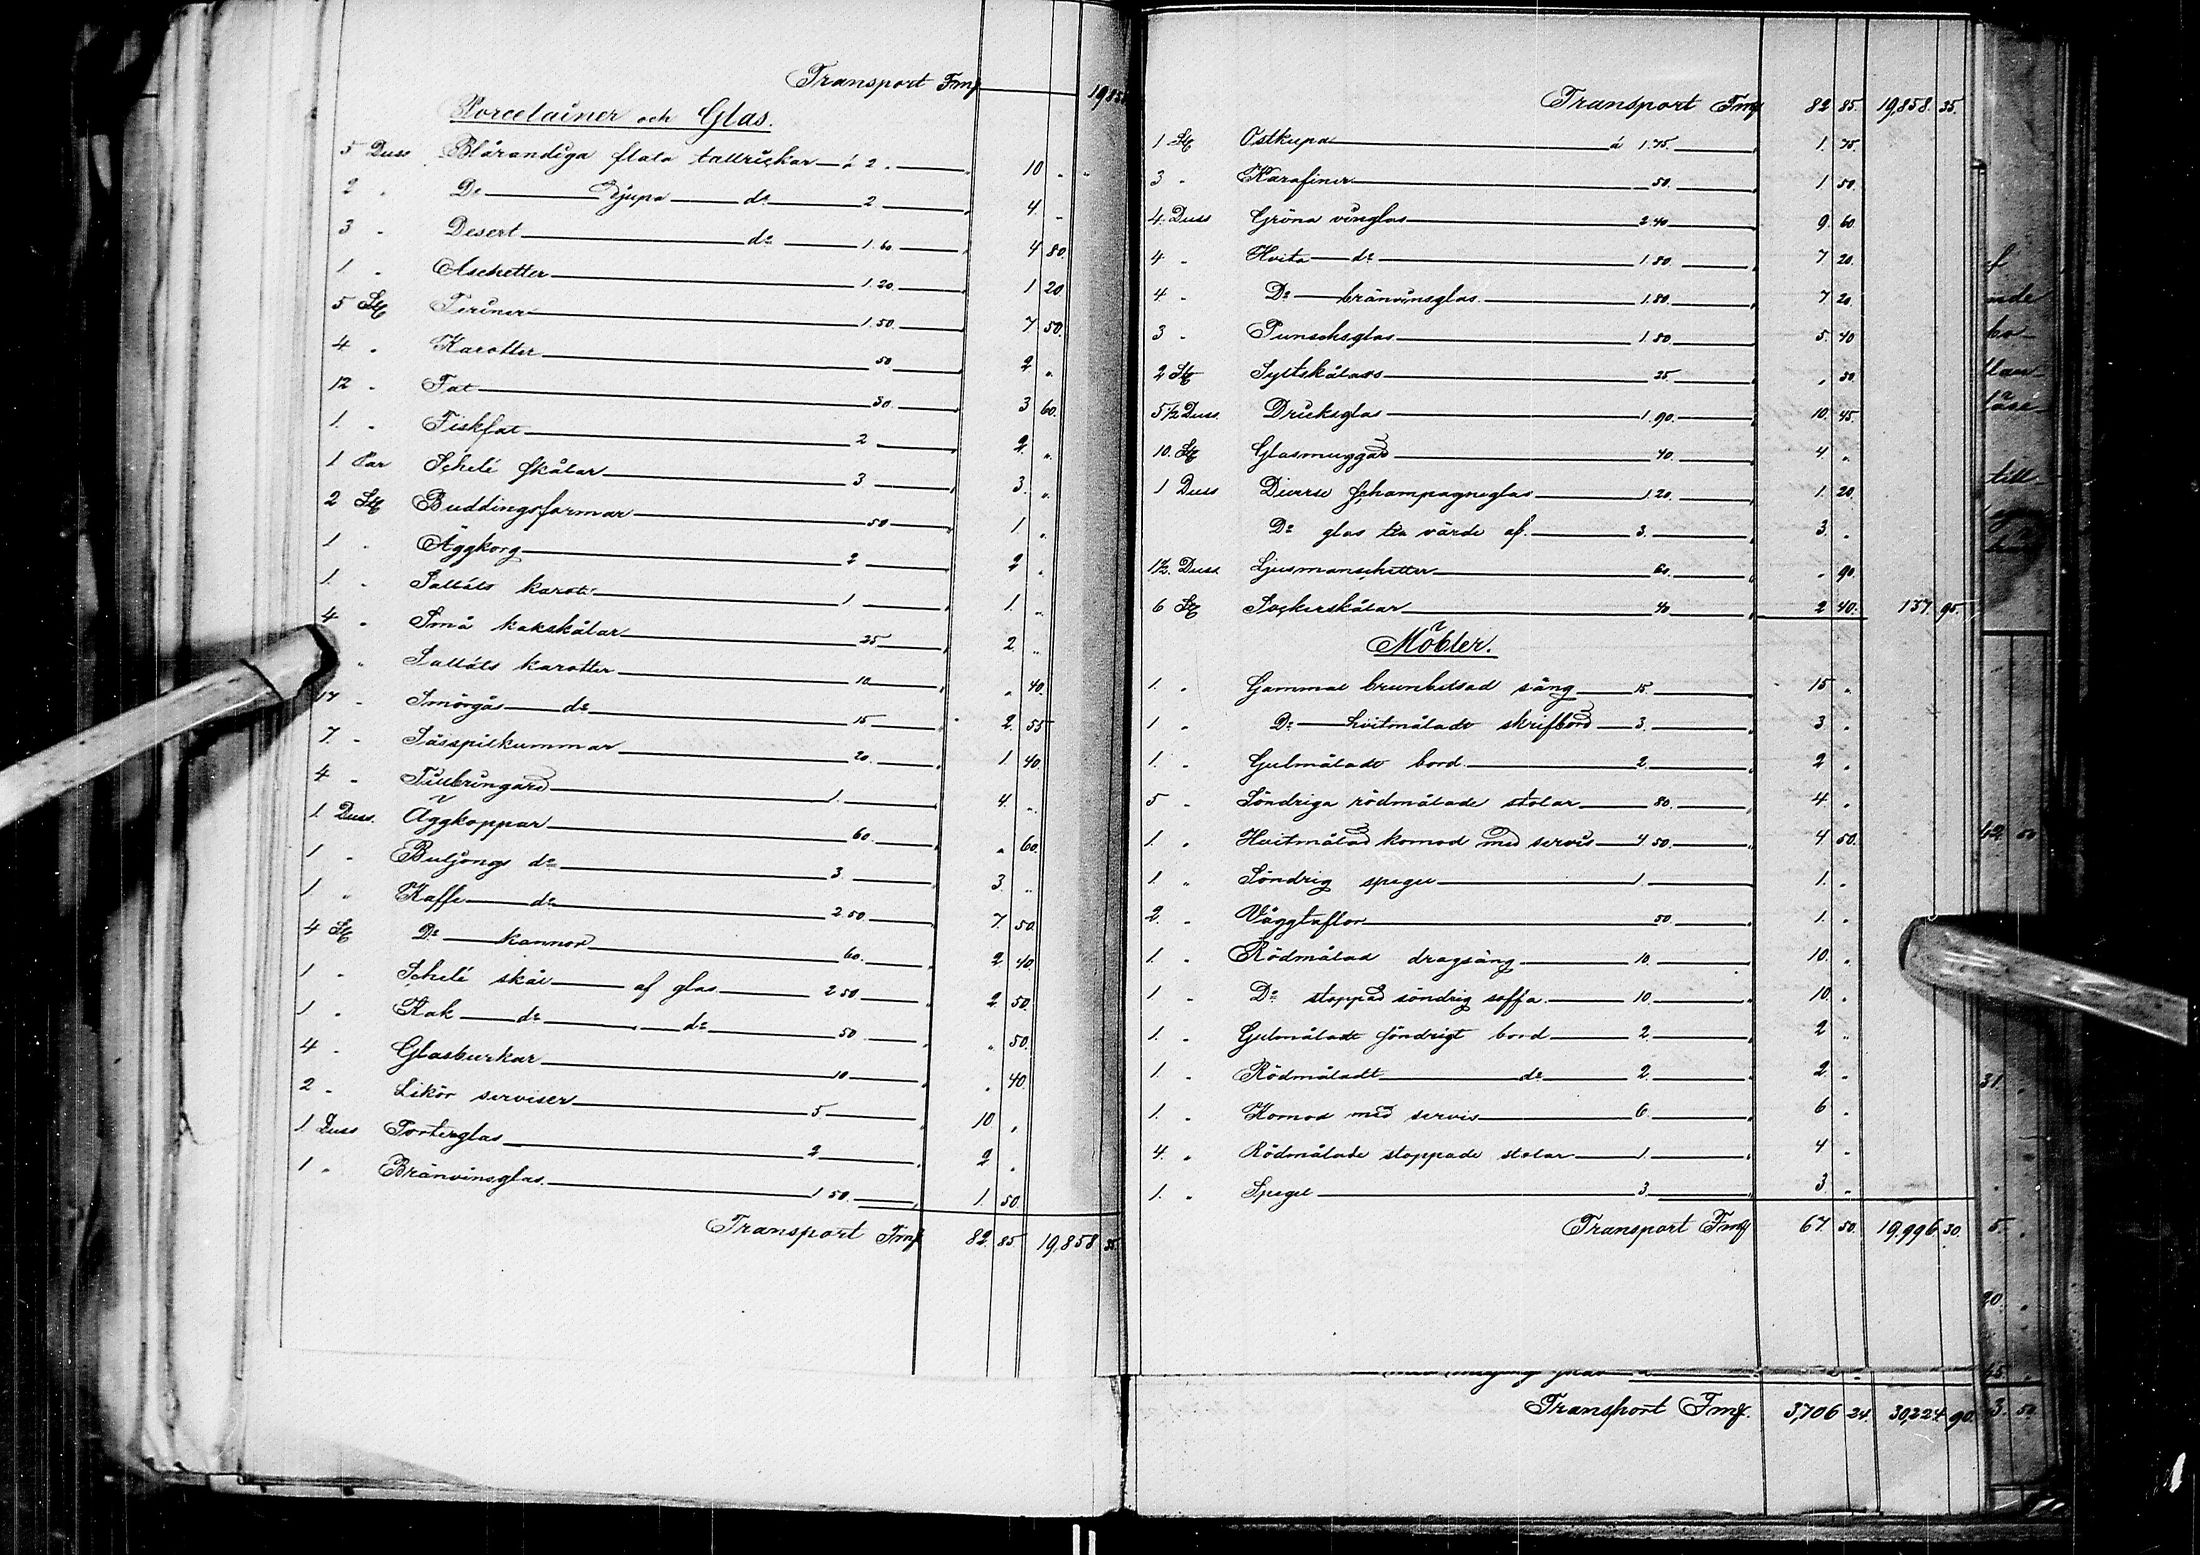 Transport Fmf 19,858
Porcelainer och Glas.
5 Duss Blårandiga flata tallrickar à 2 " 10 " "
2 " Do Djupa do 2 4 "
3 " Desert do 1.60 4 80
1 " Aschetter 1.20 1 20
5 St Teriner 1.50 7 50
4 " Karotter 50 2 "
12 " Fat 30 3 60
1 " Fiskfat 2 2 "
1 Par Schelé skålar 3 3 "
2 St Buddingsformar 50 1 "
1 " Äggkorg 2 2 "
1 " Sallats karott 1 1 "
4 " Små kakskålar 25 2 "
" Sallats karotter 10 " 40
17 " Smörgås do 15 2 55
7 " Såsspilkummar 20 1 40
4 " Tillbringard 1 4 "
1 Duss. Äggkoppar 60 " 60
1 " Buljongs do 3 3 "
1 " Kaffe do 2 50 7 50
4 St Do kannor 60 2 40
1 " Schelé skål af glas 2 50 2 50
1 " Kak do do 50 " 50
4 " Glasburkar 10 " 40
2 " Likör serviser 5 10 "
1 Duss Porterglas 2 2 "
1 " Bränvinsglas 1 50 1 50
Transport Fmf 82 85 19,858 35
Transport Fmf 82 85 19,858 35.
1 St Ostkupa à 1.75 1. 75
3 " Karafiner 50 1 50
4. Duss Gröna vinglas 2.40 9 60
4 " Hvita do 1.80 7 20
4 " Do bränvinsglas 1.80 7 20
3 " Punschsglas 1 80 5 40
2 St Syltskålars 25 " 50
5 1/2 Duss. Dricksglas 1.90. 10. 45
10. St Glasmuggar 40 4 "
1 Duss Diverse schampagneglas 1 20 1. 20
Do glas till värde af 3. 3. "
1 1/2. Duss Ljusmanschetter 60. " 90
6 St Sockerskålar 40 2 40. 137 95.
Möbler.
1. " Gammal brunbetsad säng 15 15 "
1 " Do hvitmåladt skrifbord 3. 3 "
1. " Gulmåladt bord 2. 2 "
5 " Söndriga rödmålade stolar 80. 4 "
1. " Hvitmålad komod med servis 4 50. 4 50.
1. " Söndrig spegel 1. 1. "
2. " Väggtaflor 50. 1. "
1. " Rödmålad dragsäng 10. 10. "
1 " Do stoppad söndrig soffa 10. 10. "
1. " Gulmåladt söndrigt bord 2. 2 "
1. " Rödmåladt do 2. 2. "
1. " Komod med servis 6. 6 "
4. " Rödmålade stoppade stolar 1. 4 "
1. " Spegel 3 3. "
Transport Fmf 67. 50 19,996 30.
Transport Fmf. 3,706 24. 30,224 90.